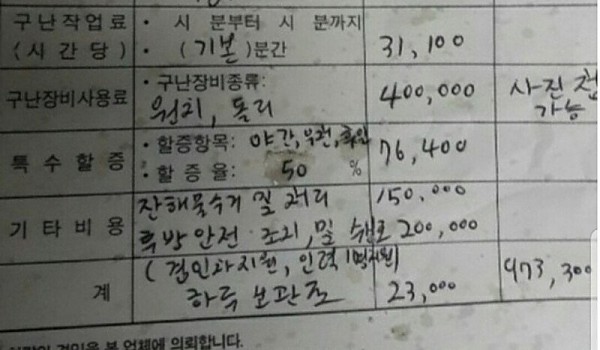 구난작업료 · 시 분부터 시 분까지
(시간당) · (기본)분간 31,100
구난장비사용료 · 구난장비종류: 400,000 사진 첨
윈치, 돌리 가능
특수할증 · 할증항목: 야간, 우천, 휴일 76,400
· 할증율: 50 %
기타비용 잔해물수거 및 처리 150,000
후방안전 조치, 및 200,000
(견인차지원, 인력1명지원)
계 하루 보관료 23,000 973,300
본 업체에 의뢰합니다.